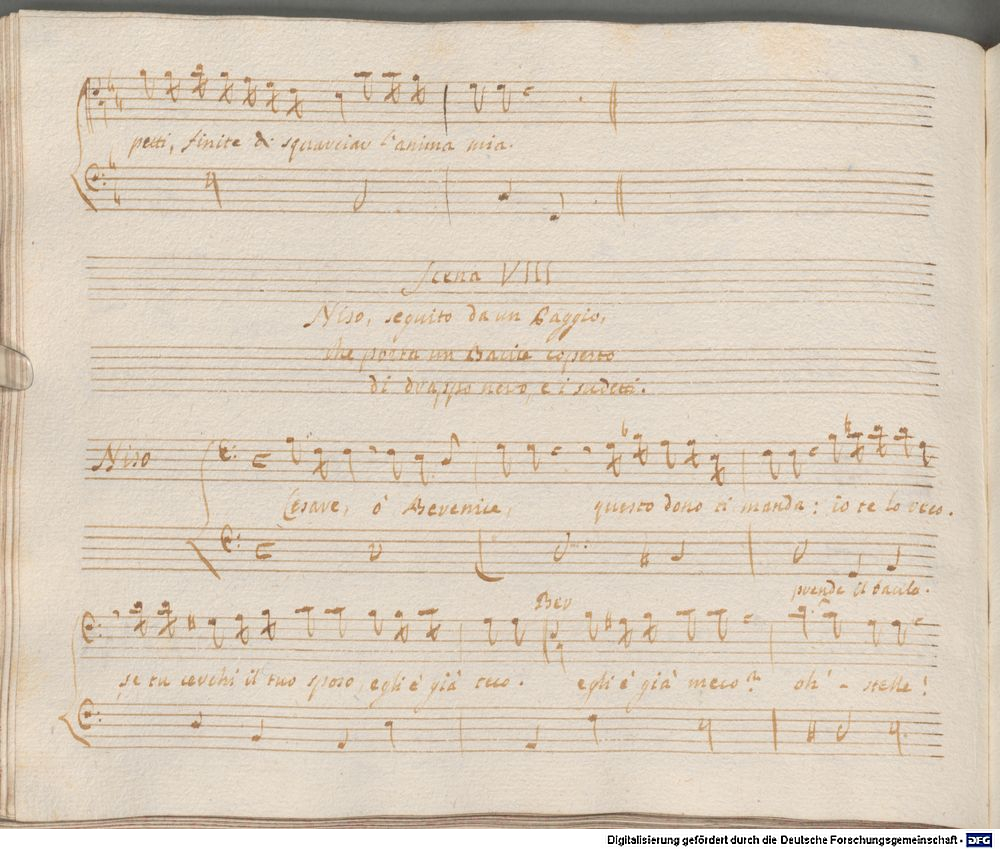 petti, finite di squarciar l'anima mia.
Scena VIII
Niso, seguito da un Paggio,
che porta un Bacile coperto
di drappo nero, e i sudetti.
Niso
Cesare, ò Berenice, questo dono ti manda: io te lo reco.
prende il bacile.
Ber
se tu cerchi il tuo sposo, egli è già teco. egli è già meco? oh' - stelle!
Digitalisierung gefördert durch die Deutsche Forschungsgemeinschaft - DFG